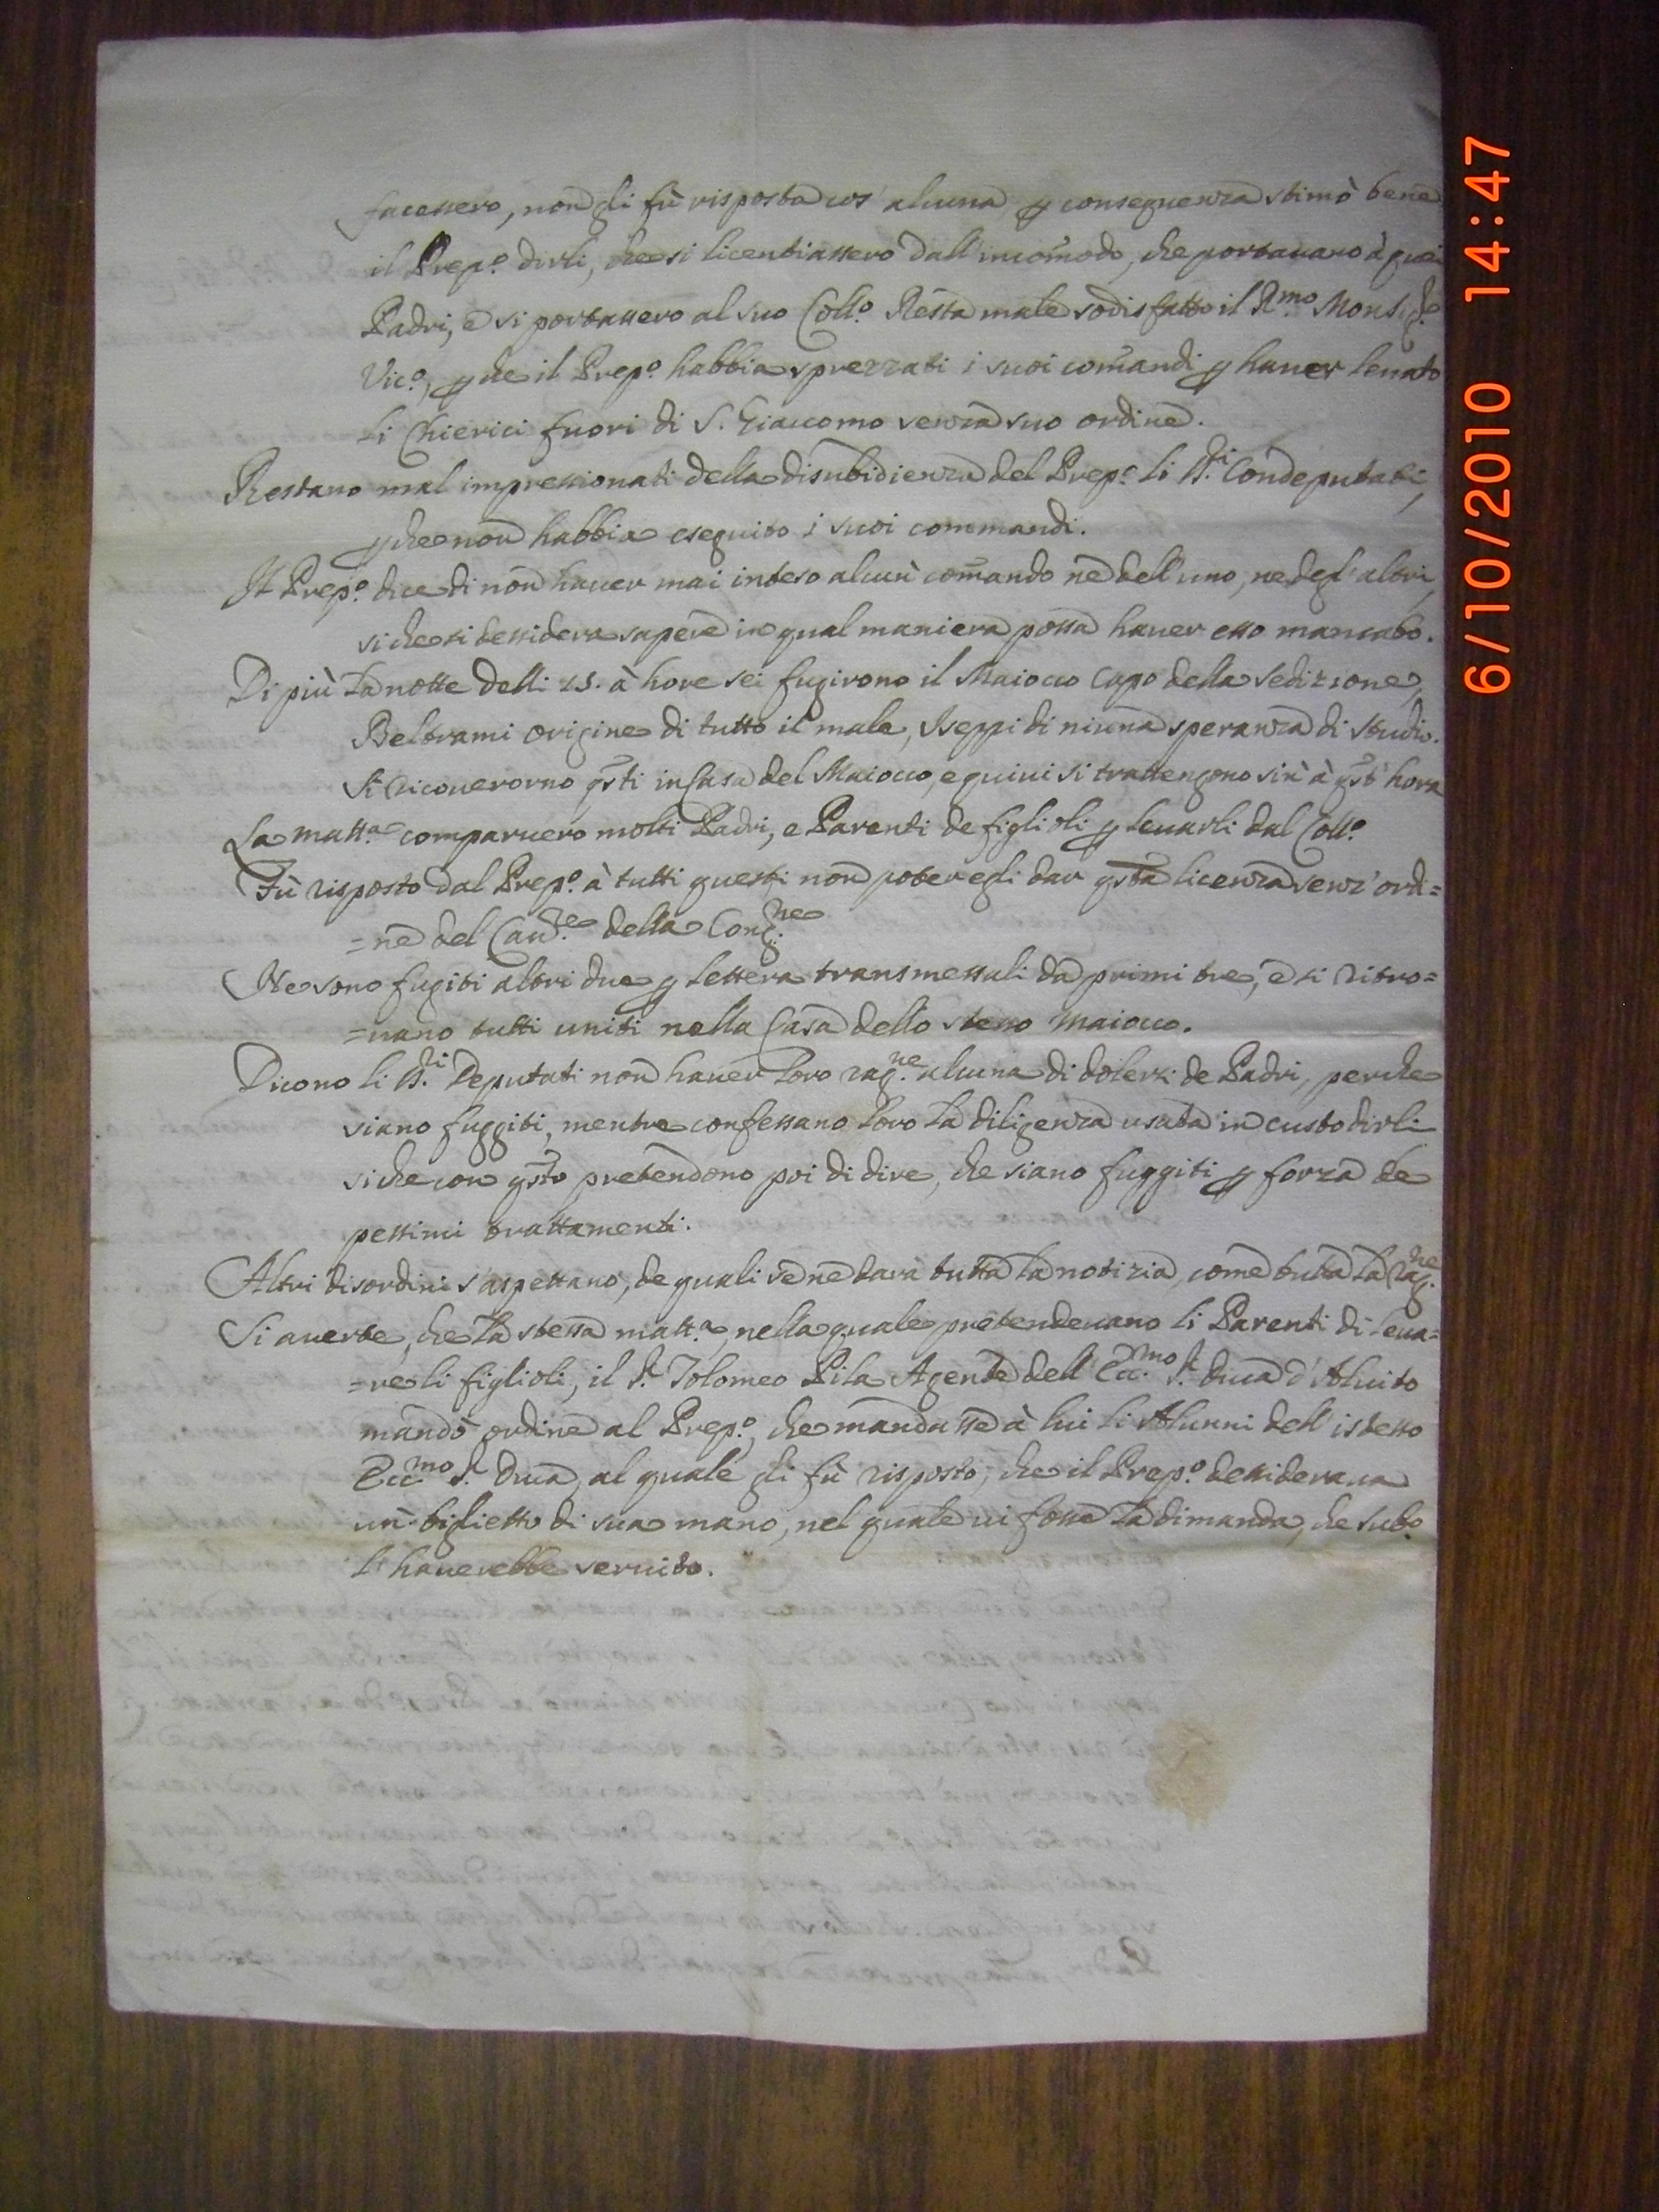 facessero, non gli fù risposta cos' alcuna p conseguenza stimò bene
il Prep.º dirli, che si licentiassero dall' incom̃odo, che portauano à quei
Padri, e si portassero al suo Coll.º Resta male sodisfatto il R.mo Monsig.re
Vic.º, p che il Prep.º habbia sprezzati i suoi com̃andi p hauer leuato
li Chierici fuori di S. Giacomo senza suo ordine.
Restano mal impressionati della disubidienza del Prep.º li SS.ri Condeputati,
p che non habbia eseguito i suoi commandi.
Il Prep.º dice di non hauer mai inteso alcun com̃ando ne dell' uno, ne degl' altri,
si che si dessidera sapere in qual maniera possa hauer esso mancato.
Di più la notte delli 25. à hore sei fugirono il Maiocco Capo della sedizione,
Beltrami origine di tutto il male, Iseppi di niuna speranza di studio.
Si ricouerorno qsti in Casa del Maiocco, e quiui si trattengono sin' à qst' hora
La matt.a comparuero molti Padri, e Parenti de figlioli p leuarli dal Coll.º
Fù risposto dal Prep.º à tutti questi non poter egli dar qsta licenza senz' ordi=
=ne del Cau.re della Cong.ne
Ne sono fugiti altri due p lettera transmessali da primi tre, e si ritro=
=uano tutti uniti nella Casa dello stesso Maiocco.
Dicono li SS.ri Deputati non hauer loro rag.ne alcuna di dolersi de Padri, perche
siano fuggiti, mentre confessano loro la diligenza usata in custodirli
si che con qsto pretendono poi di dire, che siano fuggiti p forza de
pessimi trattamenti.
Altri disordini s' aspettano, de quali se ne darà tutta la notizia, come tutta la rag.ne
Si auerte, che la stessa matt.a, nella quale pretendeuano li Parenti di leua=
=re li figlioli, il S.r Tolomeo Pila Agente dell' Ecc.mo S.r Duca d' Aluito
mandò ordine al Prep.º, che mandasse à lui li Alunni dell' istesso
Ecc.mo S.r Duca, al quale gli fù risposto, che il Prep.º dessideraua
un' biglietto di sua mano, nel quale ui fosse la dimanda, che sub.º
l' hauerebbe seruito.
6/10/2010 14:47